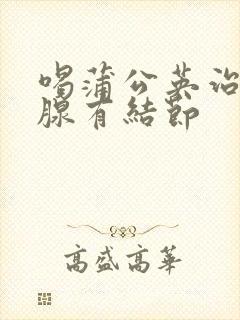 喝蒲公英治
腺有結節
高盛高華